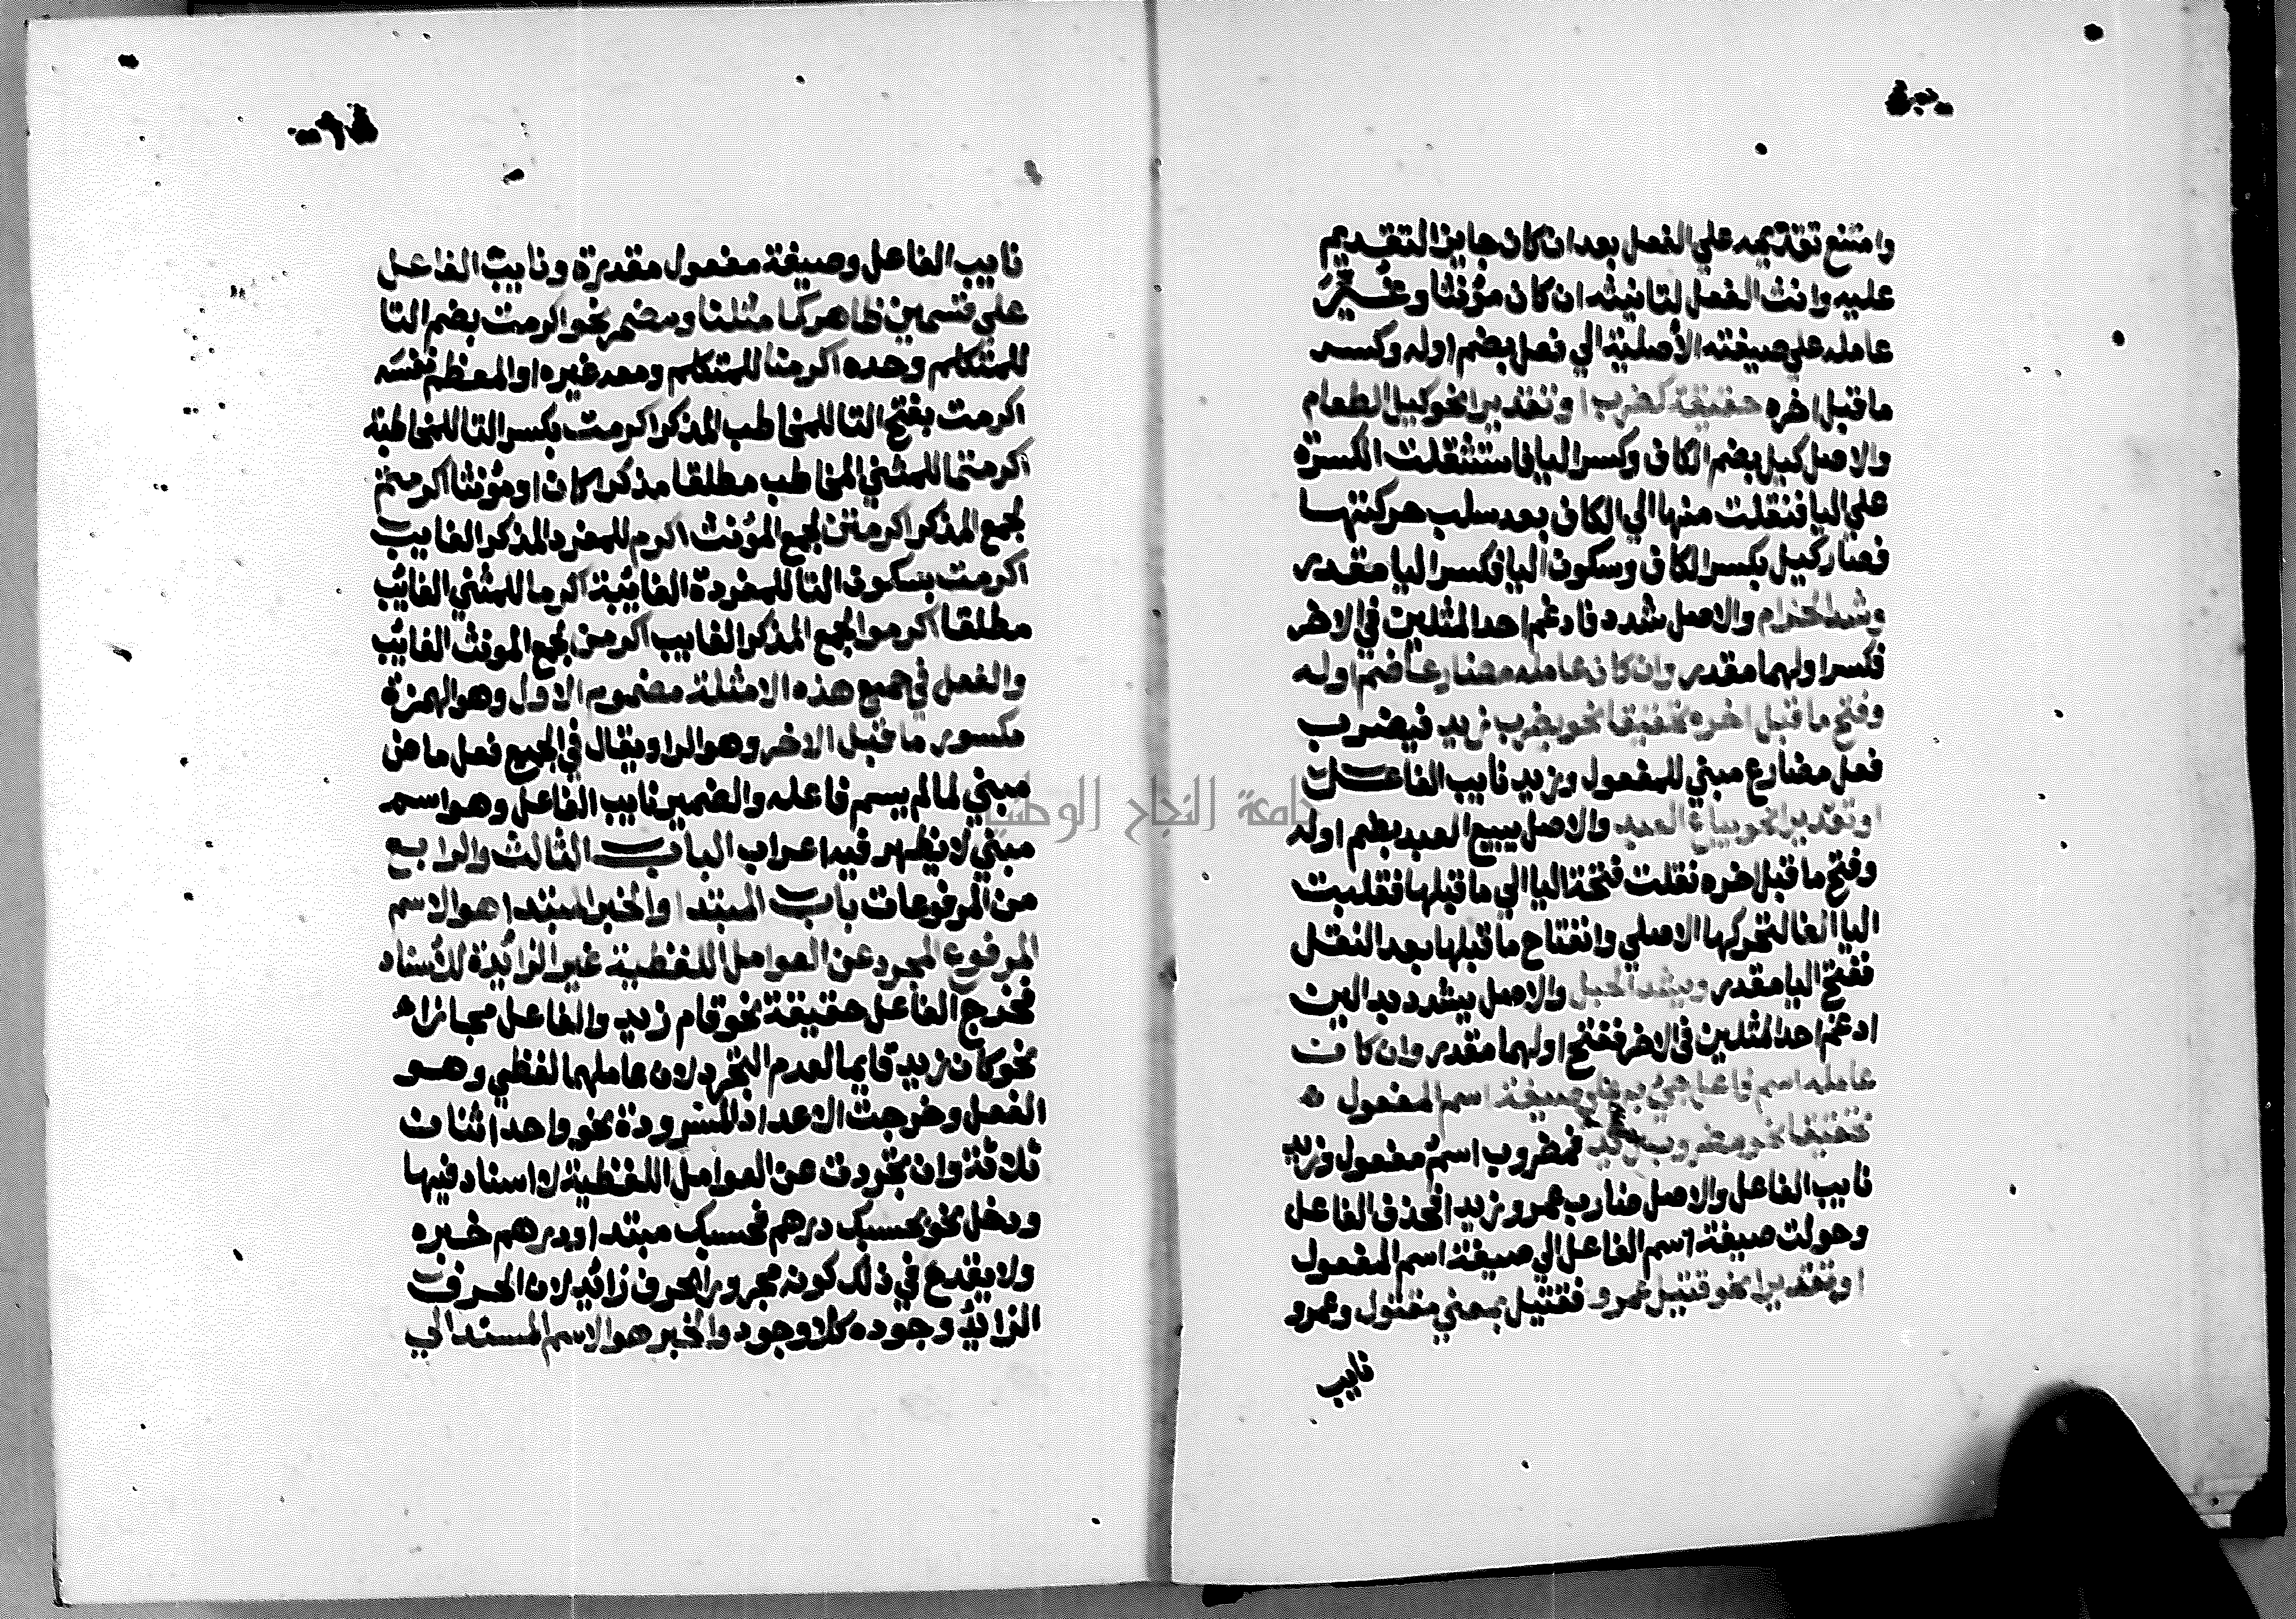 وامتنع تقديمه علي الفعل بعد ان كان جايز التقديم
عليه وانث الفعل لتانيثه ان كان مؤنثا وغير
عامله علي صيغته الأصلية الي فعل بضم اوله وكسر
ما قبل اخره حقيقة كضرب او تقديرا نحو كيل الطعام
والاصل كيل بضم الكاف وكسر اليا فاستثقلت الكسرة
علي اليا فنقلت منها الي الكاف بعد سلب حركتها
فصار كيل بكسر الكاف وسكون اليا فكسر اليا مقدر
وشد الحزام والاصل شدد فادغم احد المثلين في الاخر
فكسر اولهما مقدر وان كان عامله مضارعا ضم اوله
وفتح ما قبل اخره تحقيقا نحو يضرب زيد فيضرب
فعل مضارع مبني للمفعول وزيد نايب الفاعل
او تقديرا نحو يباع العبد والاصل يبيع العبد بضم اوله
وفتح ما قبل اخره نقلت فتحة اليا الي ما قبلها فقلبت
اليا الفا لتحركها الاصلي وانفتاح ما قبلها بعد النقل
ففتح اليا مقدر ويشد الحبل والاصل يشدد بدالين
ادغم احد المثلين في الاخر ففتح اولهما مقدر وان كان
عامله اسم فاعل جيء به علي صيغة اسم المفعول
تحقيقا نحو مضروب زيد فمضروب اسم مفعول وزيد
نايب الفاعل والاصل ضارب عمرو زيدا فحذف الفاعل
وحولت صيغة اسم الفاعل الي صيغة اسم المفعول
او تقديرا نحو قتيل عمرو فقتيل بمعني مقتول وعمرو
نايب
نايب الفاعل وصيغة مفعول مقدرة ونايب الفاعل
علي قسمين ظاهر كما مثلنا ومضمر نحو اكرمت بضم التا
للمتكلم وحده اكرمنا للمتكلم ومعه غيره او المعظم نفسه
اكرمت بفتح التا للمخاطب المذكر اكرمت بكسر التا للمخاطبة
اكرمتما للمثني المخاطب مطلقا مذكرا كان او مؤنثا اكرمتم
لجمع المذكر اكرمتن لجمع المؤنث اكرم للمفرد المذكر الغايب
اكرمت بسكون التا للمفردة الغائبة اكرما للمثني الغائب
مطلقا اكرموا لجمع المذكر الغايب اكرمن لجمع المونث الغائب
والفعل في جميع هذه الامثلة مضموم الاول وهو الهمزة
مكسور ما قبل الاخر وهو الرا ويقال في الجميع فعل ماض
مبني لما لم يسم فاعله والضمير نايب الفاعل وهو اسم
مبني لا يظهر فيه اعراب الباب الثالث والرابع
من المرفوعات باب المبتدا والخبر المبتدا هو الاسم
المرفوع المجرد عن العوامل اللفظية غير الزائدة للأسناد
فخرج الفاعل حقيقة نحو قام زيد والفاعل مجازا
نحو كان زيد قايما لعدم التجرد لان عاملهما لفظي وهو
الفعل وخرجت الاعداد المسرودة نحو واحد اثنان
ثلاثة وان تجردت عن العوامل اللفظية لا اسناد فيها
ودخل نحو بحسبك درهم فحسبك مبتدا ودرهم خبره
ولا يقدح في ذلك كونه مجرورا بحرف زائد لان الحرف
الزائد وجوده كلا وجود والخبر هو الاسم المسند الي
جامعة النجاح الوطنية